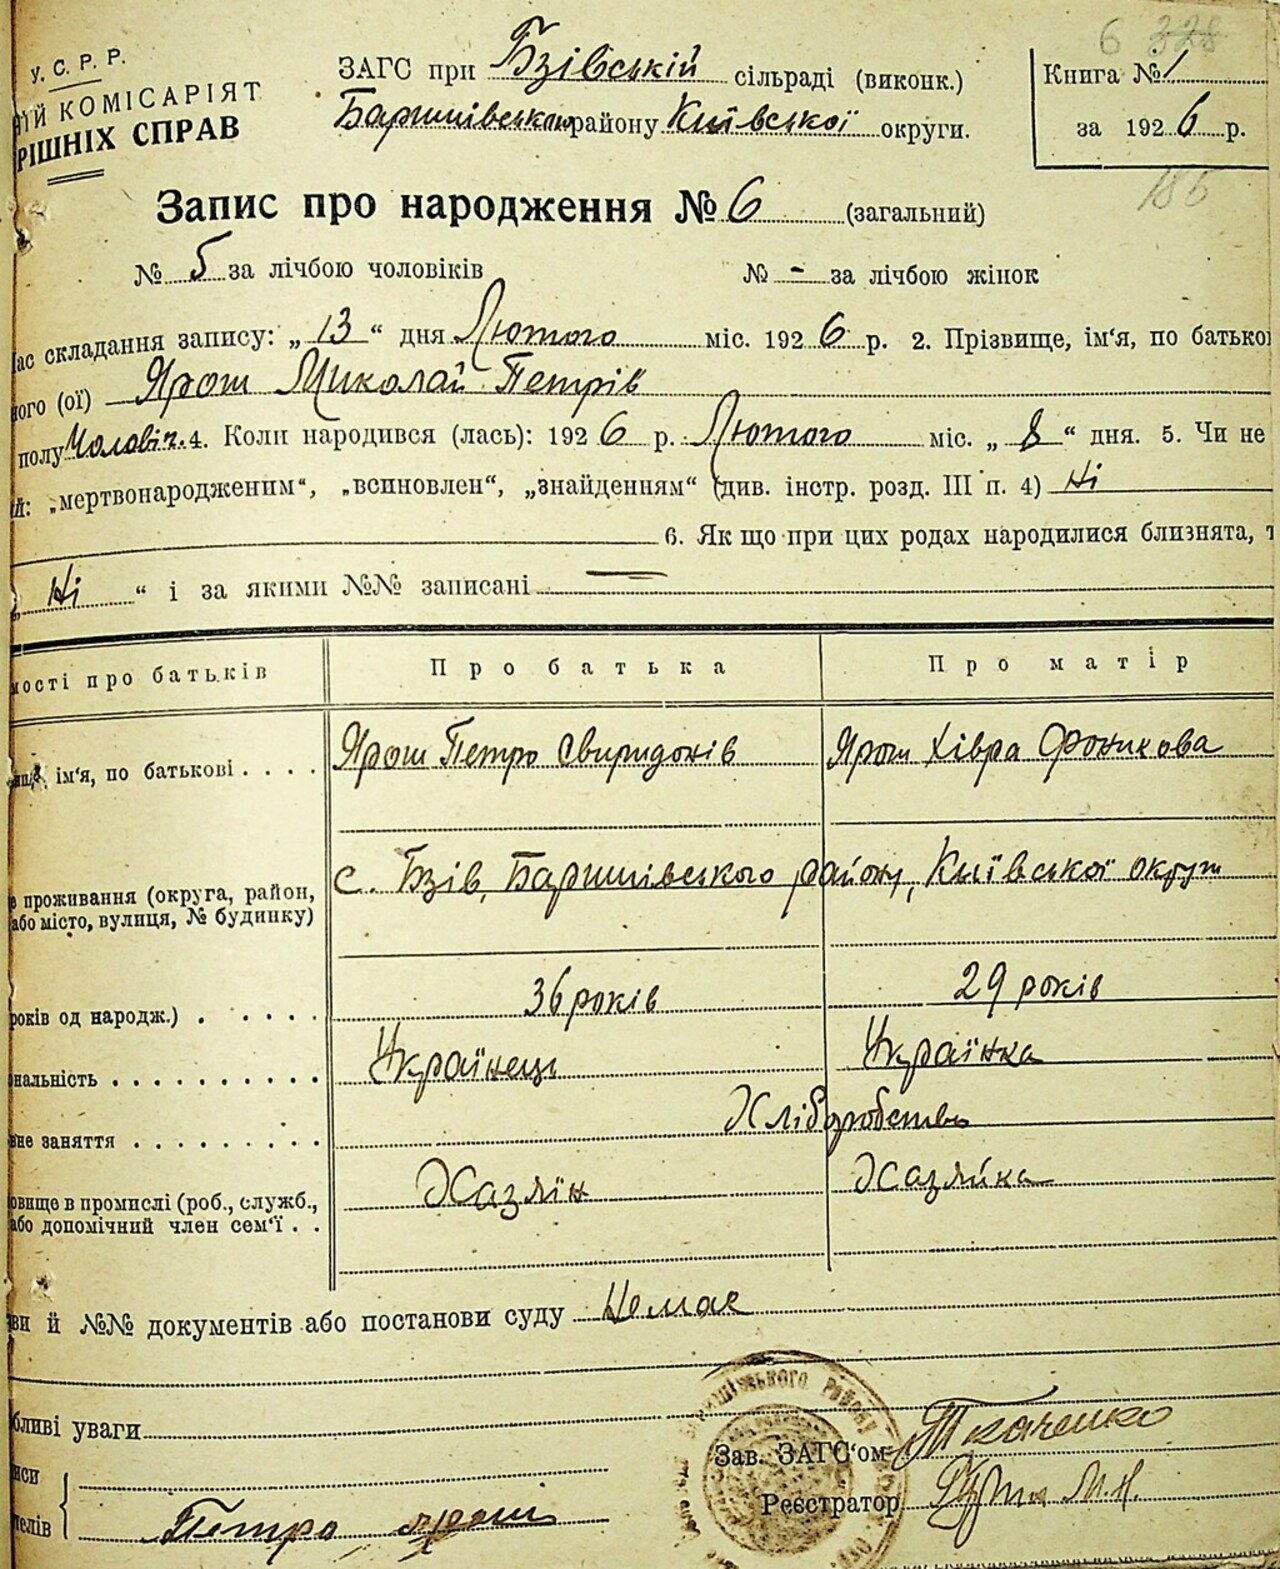 У. С. Р. Р.
ІЙ КОМІСАРІЯТ
РІШНІХ СПРАВ
ЗАГС при Бзівській сільраді (виконк.)
Баришівськом району Київської округи.
6 328
Книга № 1
за 1926 р.
186
Запис про народження № 6 (загальний)
№ 5 за лічбою чоловіків № - за лічбою жінок
ас складання запису: „ 13 “ дня Лютого міс. 1926 р. 2. Прізвище, ім'я, по батько
ного (ої) Ярош Миколай Петрів
полу Чоловіч. 4. Коли народився (лась): 1926 р. Лютого міс. „ 8 “ дня. 5. Чи не
й: „мертвонародженим“, „всиновлен“, „знайденням“ (див. інстр. розд. III п. 4) Ні
6. Як що при цих родах народилися близнята, т
„ Ні “ і за якими №№ записані —
мості про батьків Про батька Про матір
ищ, ім'я, по батькові . . . . Ярош Петро Свиридонів Ярош Хівра Фоникова
е проживання (округа, район, с. Бзів, Баришівського району, Київської округи
або місто, вулиця, № будинку)
років од народж.) . . . . . 36 років 29 років
нальність . . . . . . . . . . Українець Українка
вне заняття . . . . . . . . . Хліборобство
овище в промислі (роб., служб., Хазяїн Хазяйка
або допомічний член сем'ї . .
ви й №№ документів або постанови суду Немає
бливі уваги
Зав. ЗАГС'ом Ткаченко
Реєстратор М. Н.
иси
телів Петро Ярош
РАЙОНУ